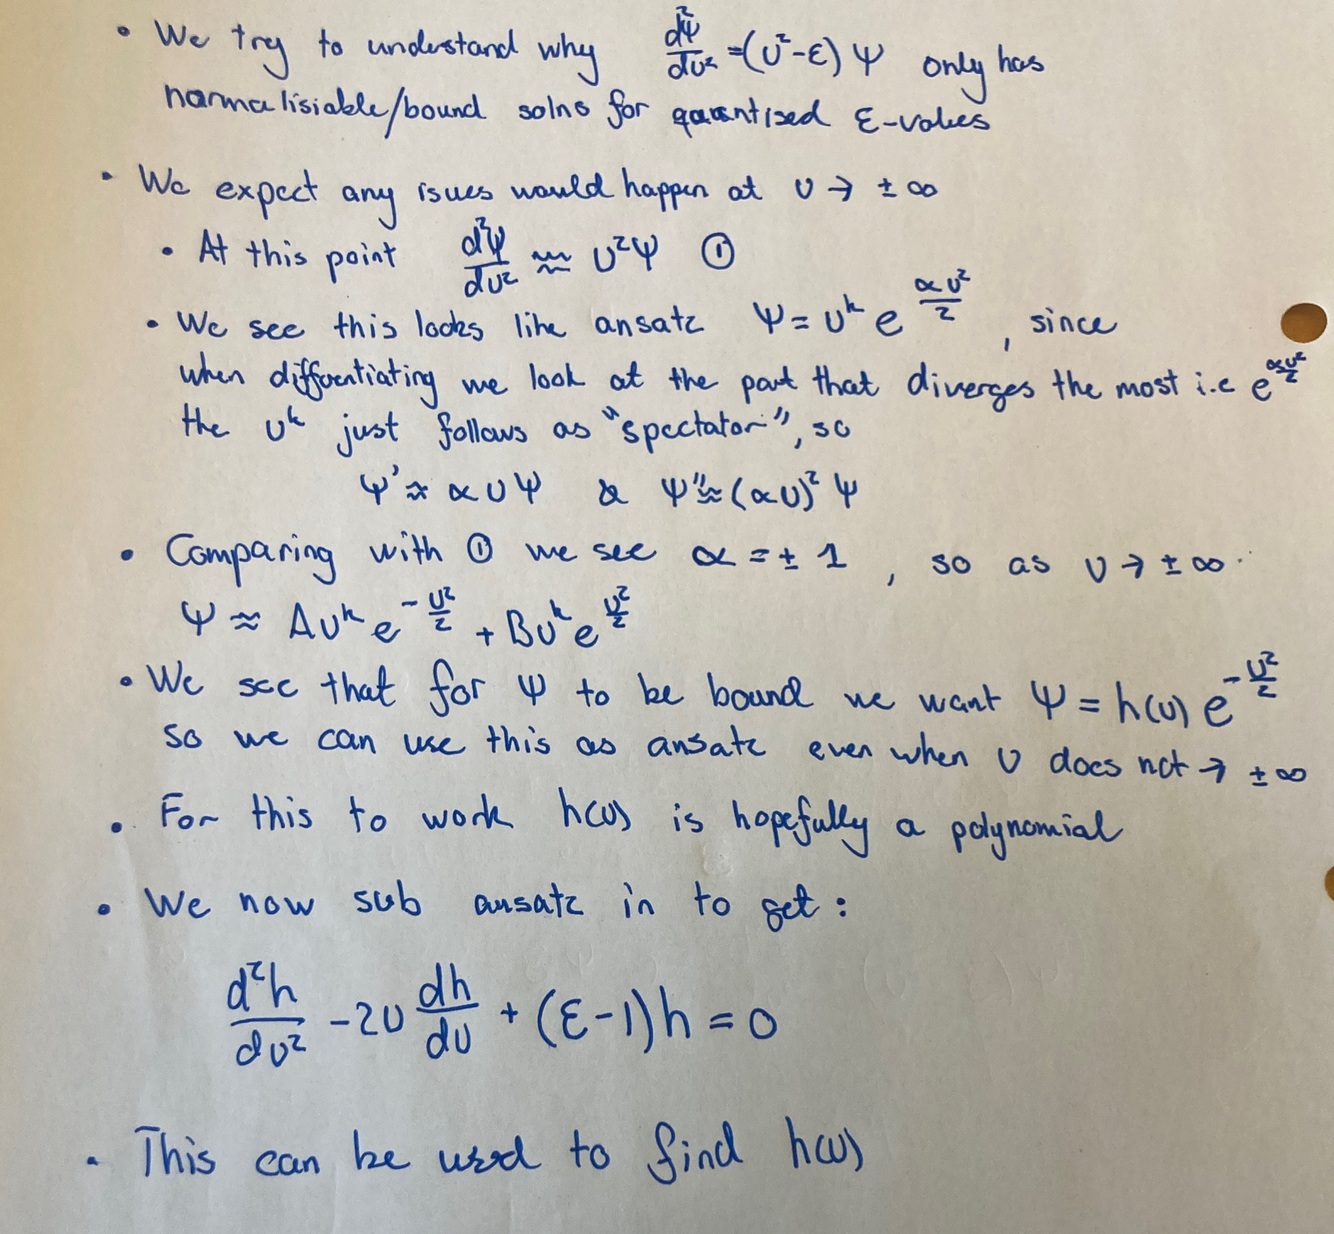 • We try to understand why d²Ψ/du² = (u²-ε) Ψ only has
normalisiable/bound solns for quantised ε-values
• We expect any isues would happen at u → ± ∞
• At this point d²Ψ/du² ≈ u²Ψ ①
• We see this looks like ansatz Ψ = u^k e^(αu²/2) , since
when differentiating we look at the part that diverges the most i.e e^(αu²/2)
the u^k just follows as "spectator", so
Ψ' ≈ αuΨ & Ψ'' ≈ (αu)² Ψ
• Comparing with ① we see α = ± 1 , so as u → ± ∞
Ψ ≈ Au^k e^(-u²/2) + Bu^k e^(u²/2)
• We see that for Ψ to be bound we want Ψ = h(u) e^(-u²/2)
so we can use this as ansatz even when u does not → ± ∞
• For this to work h(u) is hopefully a polynomial
• We now sub ansatz in to get :
d²h/du² - 2u dh/du + (ε-1)h = 0
• This can be used to find h(u)